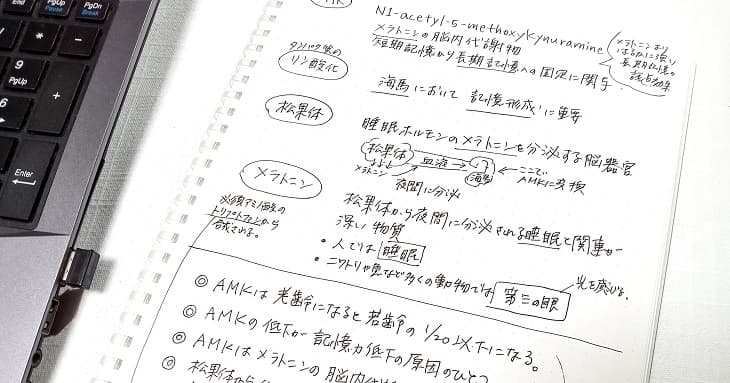 PgUp
Pause
PgDn
Break
9
PgUp
6
3
PgDn
Enter
MK
N1-acetyl-5-methoxykynuramine
メラトニンの脳内代謝物
短期記憶から長期記憶への固定に関与
メラトニンより
はるかに強い
長期記憶の
誘導効果
タンパク質の
リン酸化
海馬において 記憶形成に重要
松果体
睡眠ホルモンのメラトニンを分泌する脳器官
松果体 血液 → 海馬 ← ここで
AMKに変換
メラトニン
夜間に分泌
メラトニン
必須アミノ酸の
トリプトファンから
合成される。
松果体から夜間に分泌される睡眠と関連が
深い物質
・人では 睡眠
・ニワトリや魚など多くの動物では 第三の眼
光を感じる。
◎ AMKは老齢になると若齢の1/20以下になる。
◎ AMKの低下が記憶力低下の原因のひとつ
◎ AMKはメラトニンの脳内代謝
◎ 松果体から